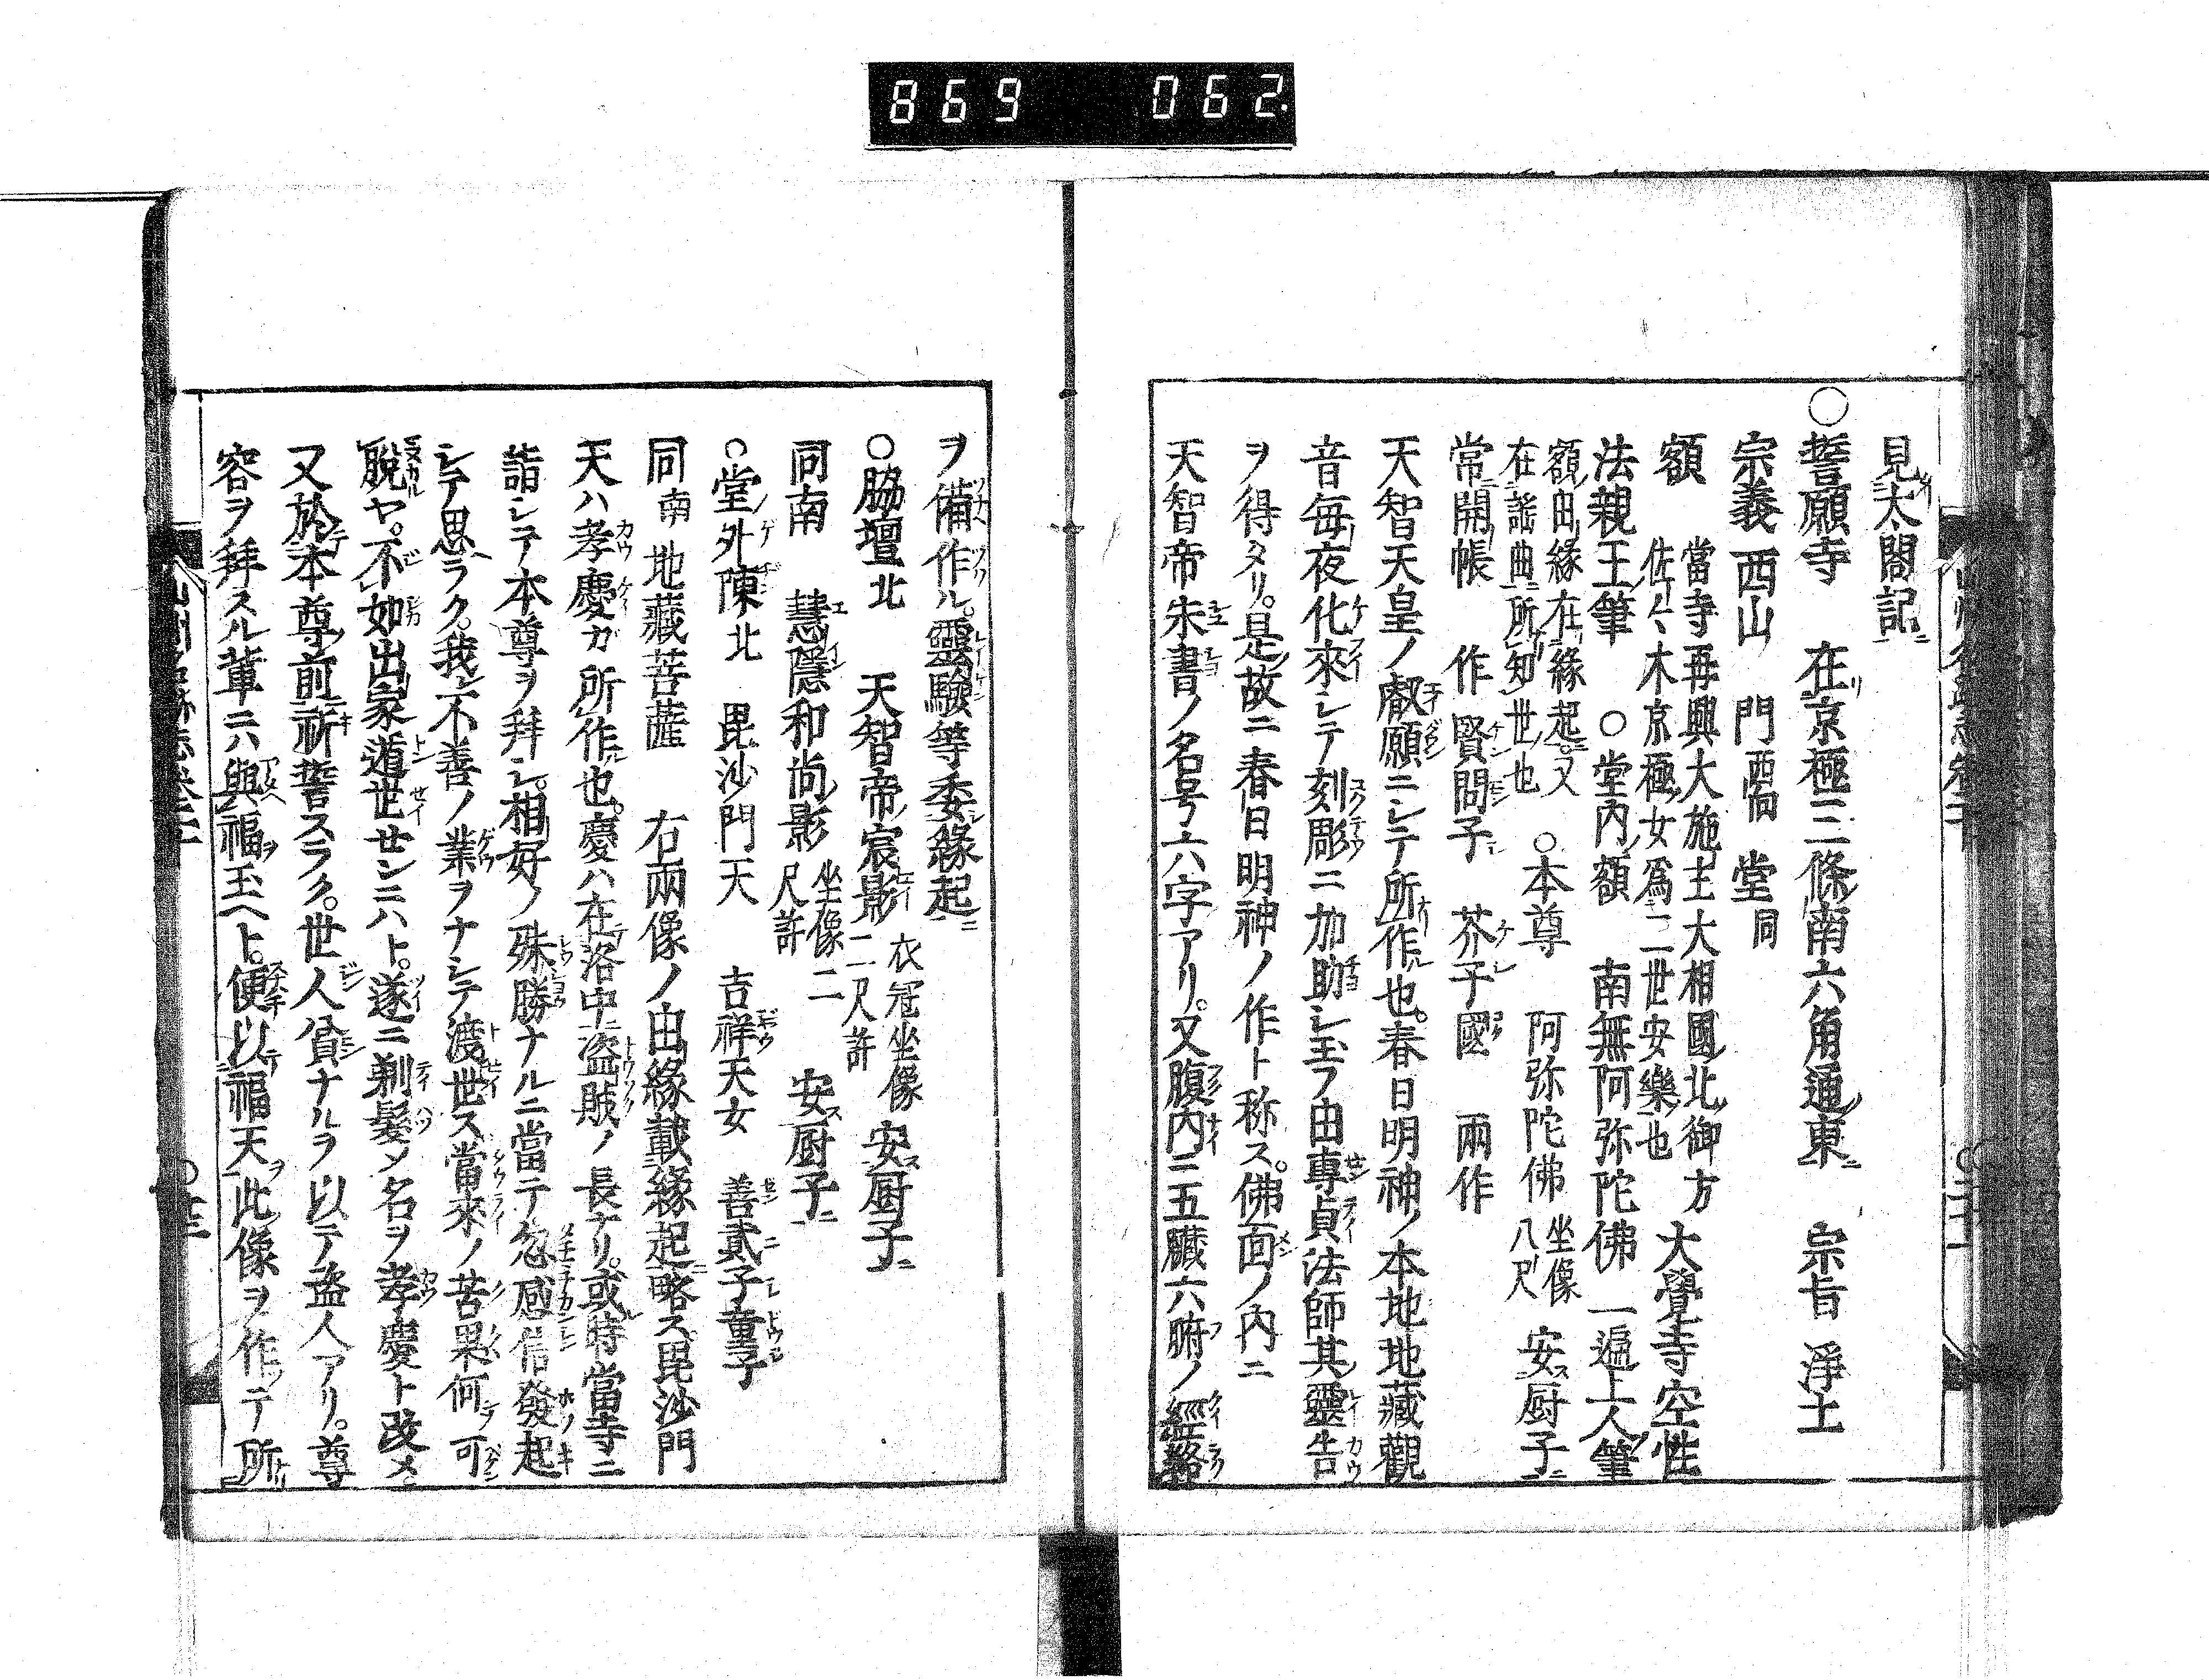 869 062.
見太閤記ニ
○誓願寺 在京極三條南六角通東ニ 宗旨 淨土
宗義西山 門西面 堂同
額 當寺再興大施主大相國北御方
佐々木京極女為二世安樂也 大覺寺空性
法親王筆 ○堂内額 南無阿弥陀佛 一遍上人筆
額由縁在縁起ニ又
在謡曲ニ所知世也 ○本尊 阿弥陀佛 坐像
八尺 安厨子ニ
常開帳 作 賢問子 芥子國 兩作
天智天皇ノ叡願ニシテ所作也。春日明神ノ本地地藏觀
音毎夜化來シテ刻彫ニ加助シ玉フ由專貞法師其靈告
ヲ得タリ。是故ニ春日明神ノ作ト称ス。佛面ノ内ニ
天智帝朱書ノ名号六字アリ。又腹内ニ五臓六腑ノ經絡
ヲ備作ル。靈驗等委縁起ニ
○脇壇北 天智帝宸影 衣冠坐像
二尺許 安厨子ニ
同南 慧隱和尚影 坐像二
尺許 安厨子ニ
○堂外陳北 毘沙門天 吉祥天女 善貳子童子
同南 地藏菩薩 右兩像ノ由縁載縁起ニ略ス毘沙門
天ハ孝慶ガ所作也。慶ハ在洛中盗賊ノ長ナリ。或時當寺ニ
詣シテ本尊ヲ拜シ。相好ノ殊勝ナルニ當テ忽感信發起
シテ思ラク。我レ不善ノ業ヲナシテ渡世ス當來ノ苦果何ヲ可
脱ヤ。不如出家遁世センニハト。遂ニ剃髪シ名ヲ孝慶ト改メ
又於本尊前祈誓スラク。世人貧ナルヲ以テ盗人アリ。尊
容ヲ拜スル輩ニハ與福玉ヘト。便以福天此像ヲ作テ所